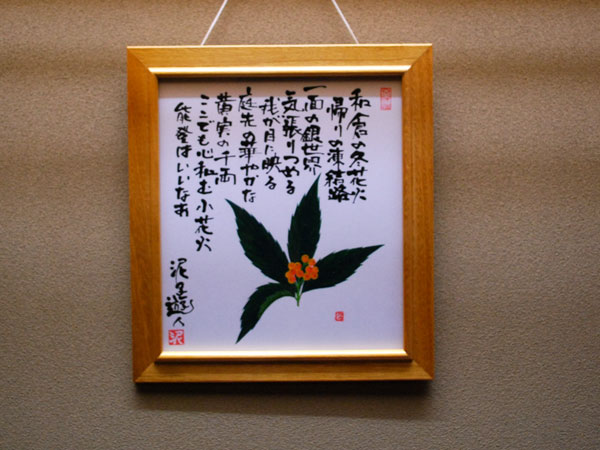 和倉の冬花火
帰りの凍結路
一面の銀世界
気張りつめる
我が目に映る
庭先の華やかな
黄実の千両
ここでも心和む小花火
能登はいいなあ
遊人